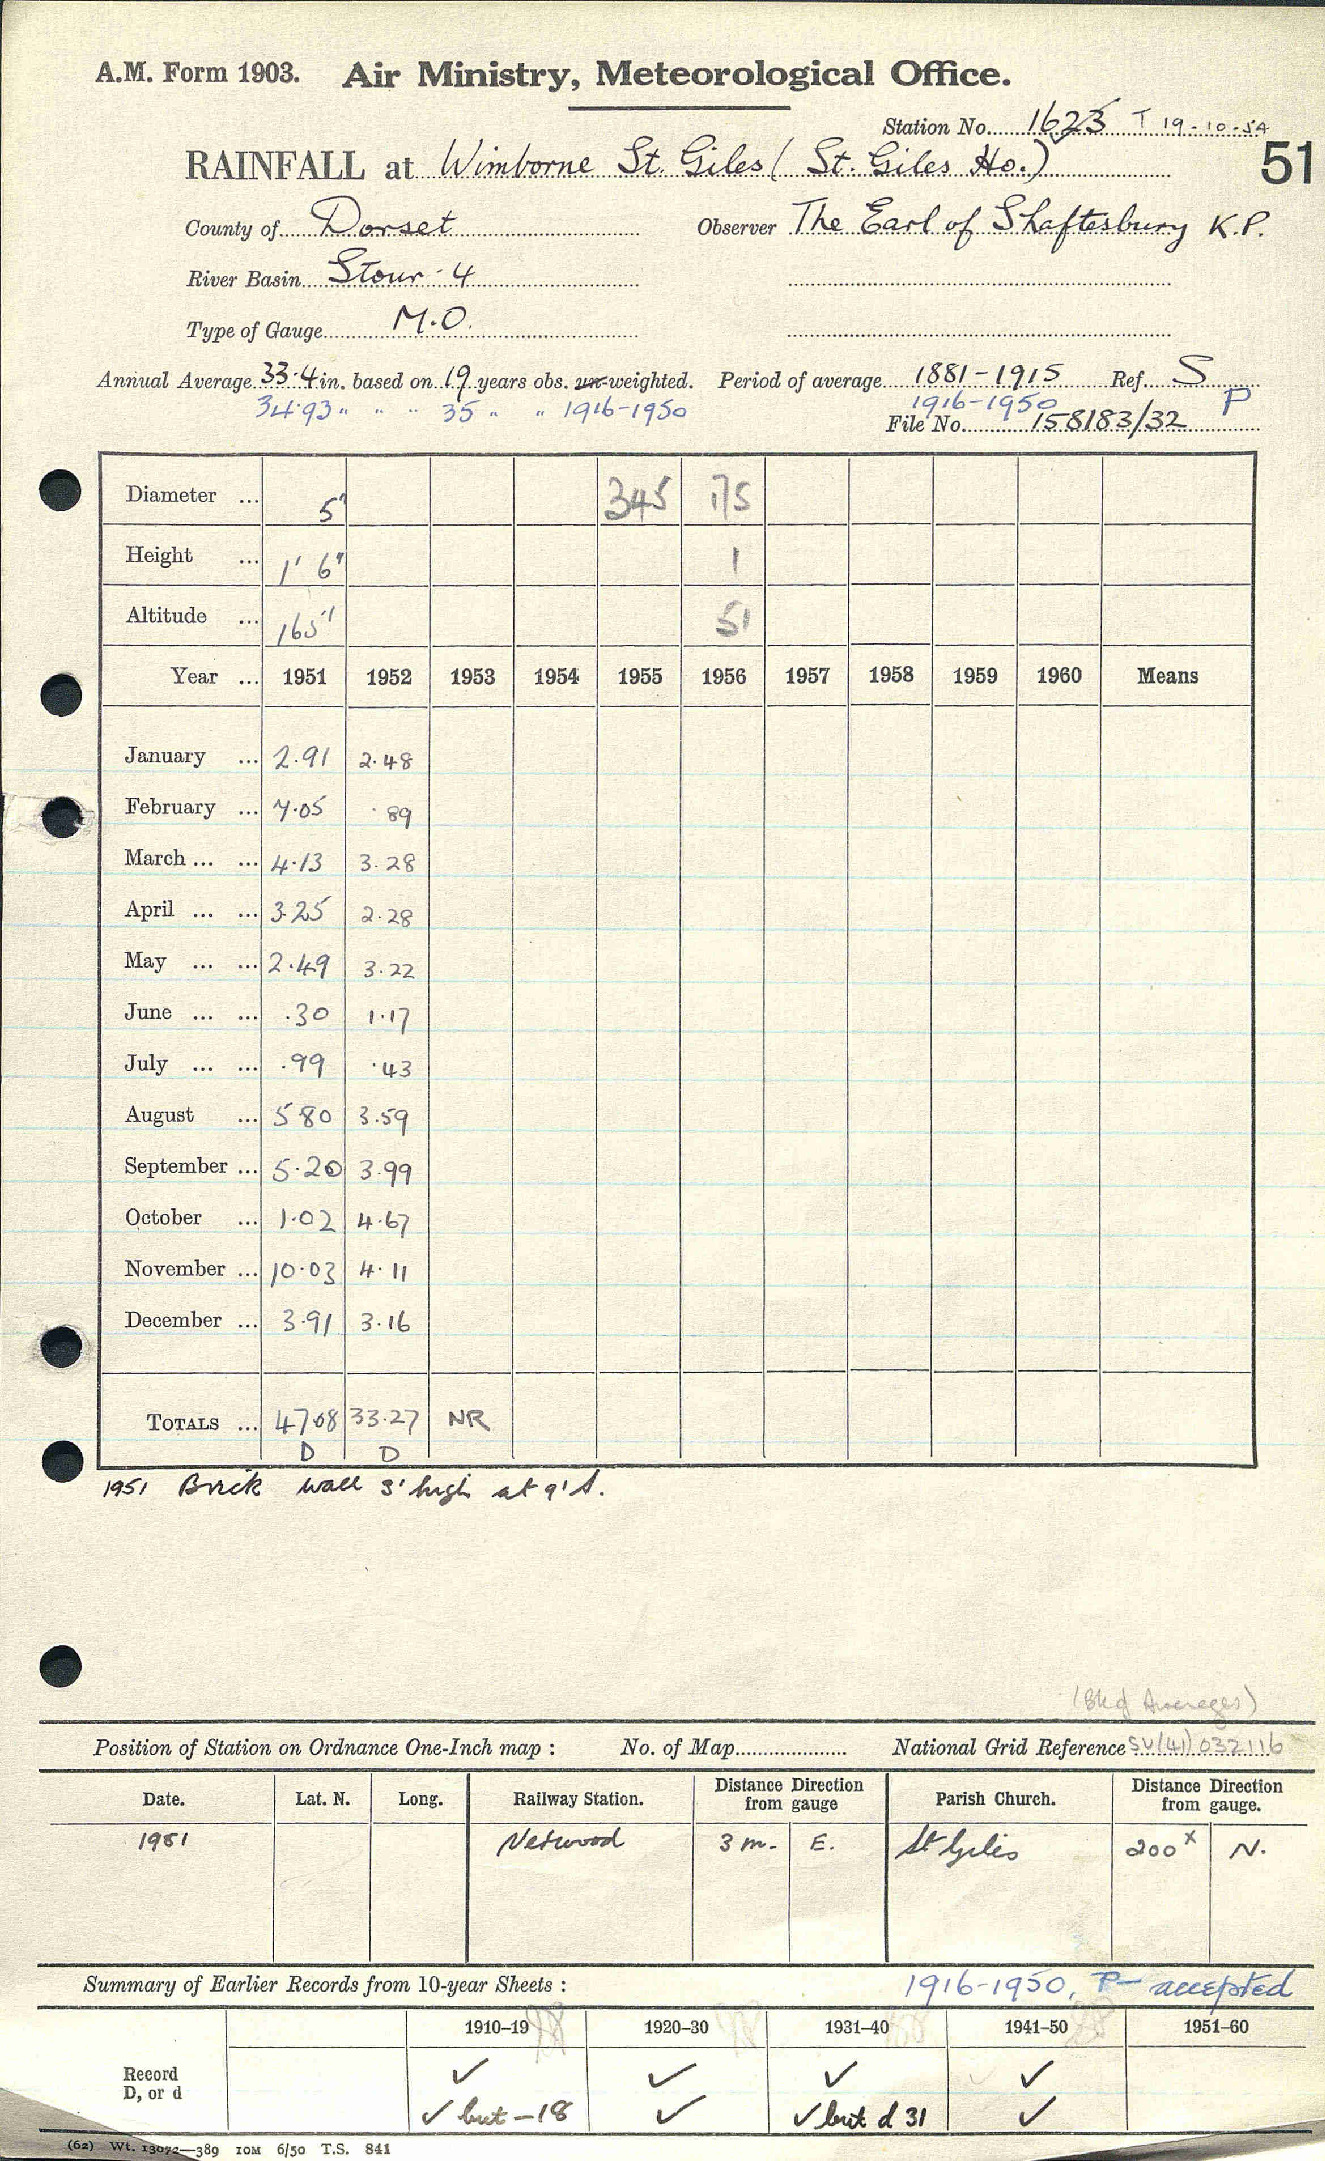 A.M. Form 1903. Air Ministry, Meteorological Office.
Station No. 1623 T 19-10-54
RAINFALL at Wimborne St. Giles (St. Giles Ho.) 51
County of Dorset Observer The Earl of Shaftesbury K.P.
River Basin Stour - 4
Type of Gauge M.O.
Annual Average 33.4 in. based on 19 years obs. un-weighted. Period of average 1881-1915 Ref. S
34.93 " " " 35 " " 1916-1950 1916-1950 P
File No. 158183/32
Diameter ... 5" 345 175
Height ... 1' 6" 1
Altitude ... 165' 51
Year ... 1951 1952 1953 1954 1955 1956 1957 1958 1959 1960 Means
January ... 2.91 2.48
February ... 7.05 .89
March ... ... 4.13 3.28
April ... ... 3.25 2.28
May ... ... 2.49 3.22
June ... ... .30 1.17
July ... ... .99 .43
August ... 5 80 3.59
September ... 5.20 3.99
October ... 1.02 4.67
November ... 10.03 4.11
December ... 3.91 3.16
TOTALS ... 47.08 33.27 NR
D D
1951 Brick wall 3' high at 9' S.
(Bkg Averages)
Position of Station on Ordnance One-Inch map : No. of Map National Grid Reference SU(41)032116
Date. Lat. N. Long. Railway Station. Distance from Direction gauge Parish Church. Distance from Direction gauge.
1951 Verwood 3 m. E. St Giles 200 x N.
Summary of Earlier Records from 10-year Sheets : 1916-1950, P- accepted
1910–19 1920–30 1931–40 1941–50 1951–60
Record ✓ ✓ ✓ ✓
D, or d ✓ but -18 ✓ ✓ but d 31 ✓
(62) Wt. 13072—389 10M 6/50 T.S. 841